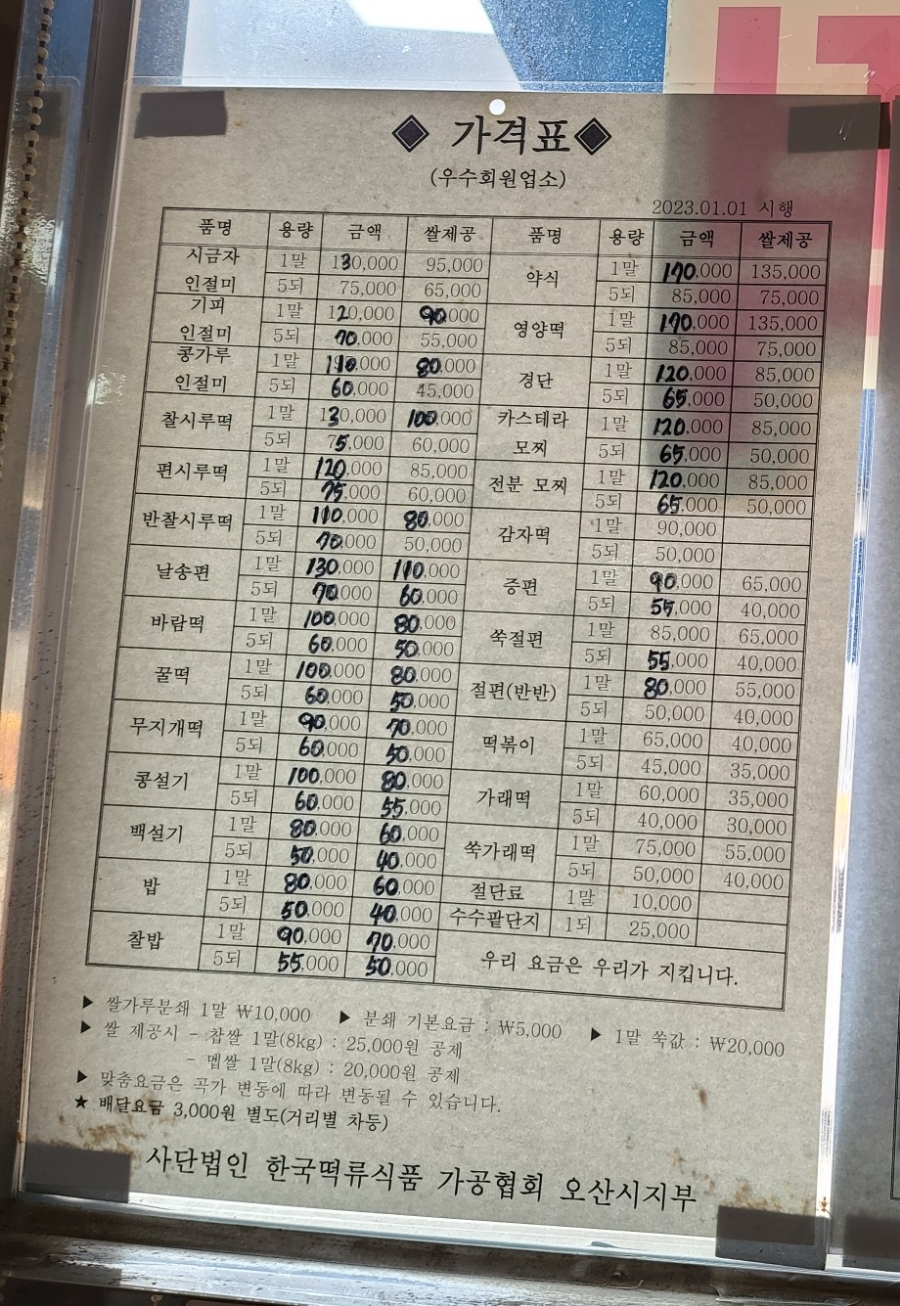 ◆ 가격표 ◆
(우수회원업소)
2023.01.01 시행
품명 용량 금액 쌀제공 품명 용량 금액 쌀제공
시금자 인절미 1말 130,000 95,000 약식 1말 170,000 135,000
5되 75,000 65,000 5되 85,000 75,000
기피 인절미 1말 120,000 90,000 영양떡 1말 170,000 135,000
5되 70,000 55,000 5되 85,000 75,000
콩가루 인절미 1말 110,000 80,000 경단 1말 120,000 85,000
5되 60,000 45,000 5되 65,000 50,000
찰시루떡 1말 130,000 100,000 카스테라 모찌 1말 120,000 85,000
5되 75,000 60,000 5되 65,000 50,000
편시루떡 1말 120,000 85,000 전분 모찌 1말 120,000 85,000
5되 75,000 60,000 5되 65,000 50,000
반찰시루떡 1말 110,000 80,000 감자떡 1말 90,000
5되 70,000 50,000 5되 50,000
날송편 1말 130,000 110,000 증편 1말 90,000 65,000
5되 70,000 60,000 5되 55,000 40,000
바람떡 1말 100,000 80,000 쑥절편 1말 85,000 65,000
5되 60,000 50,000 5되 55,000 40,000
꿀떡 1말 100,000 80,000 절편(반반) 1말 80,000 55,000
5되 60,000 50,000 5되 50,000 40,000
무지개떡 1말 90,000 70,000 떡볶이 1말 65,000 40,000
5되 60,000 50,000 5되 45,000 35,000
콩설기 1말 100,000 80,000 가래떡 1말 60,000 35,000
5되 60,000 55,000 5되 40,000 30,000
백설기 1말 80,000 60,000 쑥가래떡 1말 75,000 55,000
5되 50,000 40,000 5되 50,000 40,000
밥 1말 80,000 60,000 절단료 1말 10,000
5되 50,000 40,000 수수팥단지 1되 25,000
찰밥 1말 90,000 70,000 우리 요금은 우리가 지킵니다.
5되 55,000 50,000
▶ 쌀가루분쇄 1말 ₩10,000 ▶ 분쇄 기본요금 : ₩5,000 ▶ 1말 쑥값 : ₩20,000
▶ 쌀 제공시 - 찹쌀 1말(8kg) : 25,000원 공제
- 멥쌀 1말(8kg) : 20,000원 공제
▶ 맞춤요금은 곡가 변동에 따라 변동될 수 있습니다.
★ 배달요금 3,000원 별도(거리별 차등)
사단법인 한국떡류식품 가공협회 오산시지부